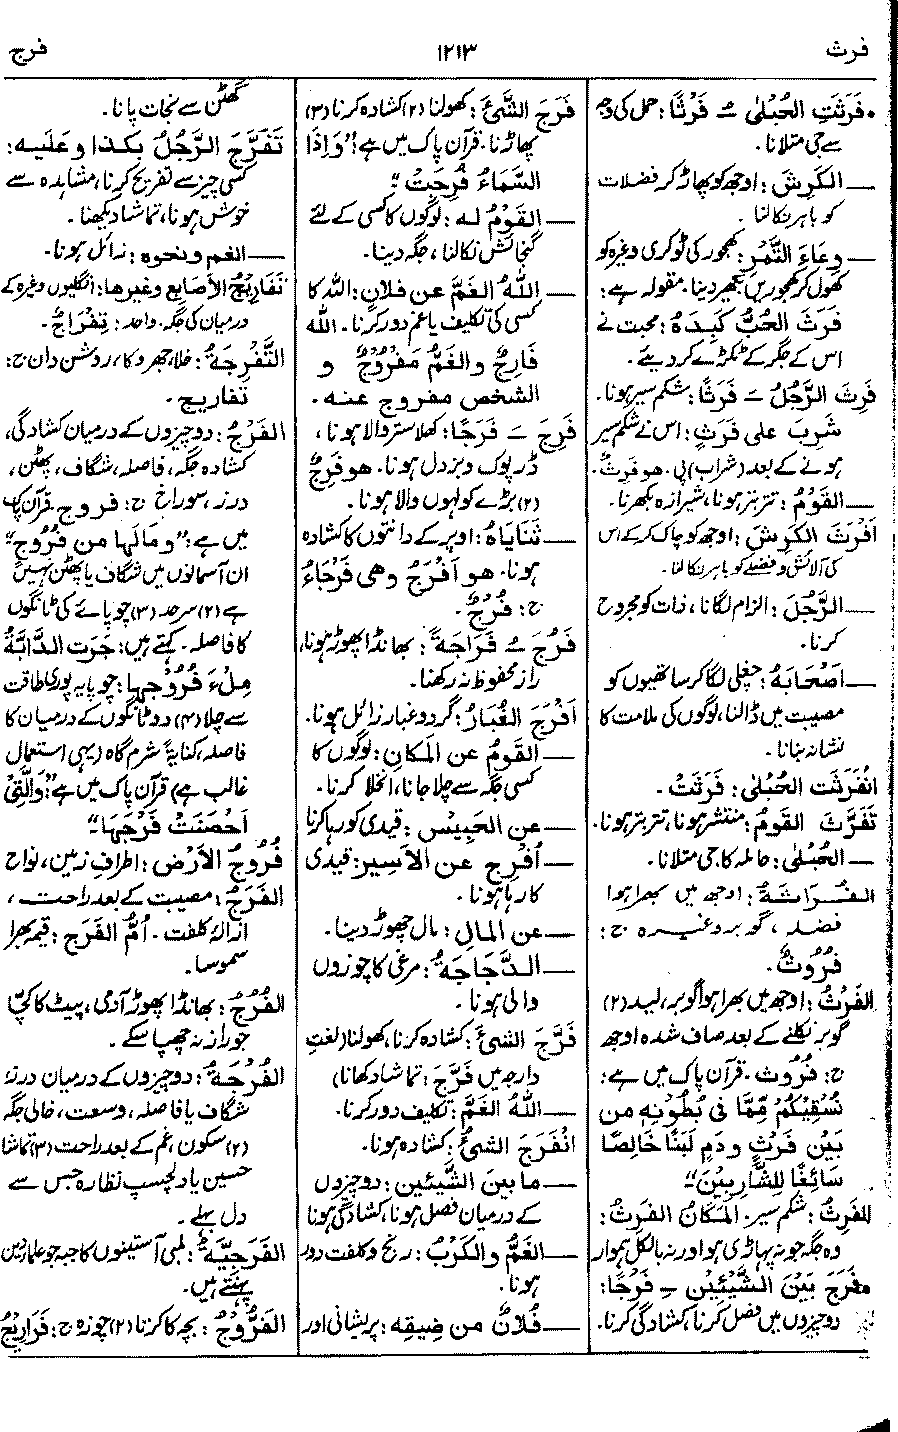 فرث
۱۲۱۳
فرج
• فَرَثَتِ الحُبْلىٰ ـُ فَرْثًا: حمل کی وجہ
سے جی متلانا۔
— الکَرِشَ: اوجھ کو پھاڑ کر فضلات
کو باہر نکالنا۔
— وِعَاءَ التَّمْرِ: کھجور کی ٹوکری وغیرہ کو
کھول کر کھجوریں بکھیر دینا۔ مقولہ ہے:
فَرَثَ الحُبُّ کَبِدَہُ: محبت نے
اس کے جگر کے ٹکڑے کر دیئے۔
فَرِثَ الرَّجُلُ ـَ فَرَثًا: شکم سیر ہونا۔
شَرِبَ علی فَرَثٍ: اس نے شکم سیر
ہونے کے بعد (شراب) پی۔ ھو فَرِثٌ۔
— القَوْمُ: تتر بتر ہونا، شیرازہ بکھرنا۔
اَفْرَثَ الکَرِشَ: اوجھ کو چاک کرکے اس
کی آلائش و فضلے کو باہر نکالنا۔
— الرَّجُلَ: الزام لگانا، ذات کو مجروح
کرنا۔
— اَصْحَابَهُ: چغلی لگا کر ساتھیوں کو
مصیبت میں ڈالنا، لوگوں کی ملامت کا
نشانہ بنانا۔
انْفَرَثَت الحُبْلىٰ: فَرَثَتْ۔
تَفَرَّثَ القَوْمُ: منتشر ہونا، تتر بتر ہونا۔
— الحُبْلىٰ: حاملہ کا جی متلانا۔
الفُرَاثَةُ: اوجھ میں بھرا ہوا
فضلہ، گوبر وغیرہ ج:
فُرُوْثٌ۔
الفَرْثُ: اوجھ میں بھرا ہوا گوبر، لید (۲)
گوبر نکلنے کے بعد صاف شدہ اوجھ
ج: فُرُوْث۔ قرآن پاک میں ہے:
نُسْقِيْكُمْ مِّمَّا فِي بُطُوْنِهٖ مِن
بَيْن فَرْثٍ ودَمٍ لَبَنًا خَالِصًا
سَائِغًا لِلشَّارِبِيْنَ“
الفَرِثُ: شکم سیر۔ المَکَانُ الفَرِثُ:
وہ جگہ جو نہ پہاڑی ہو اور نہ بالکل ہموار
• فَرَجَ بَيْنَ الشَّيْئَيْنِ ـِ فَرْجًا:
دو چیزوں میں فصل کرنا، کشادگی کرنا۔
فَرَجَ الشَّىْءَ: کھولنا (۲) کشادہ کرنا (۳)
پھاڑنا۔ قرآن پاک میں ہے: ”وَاِذَا
السَّمَاءُ فُرِجَتْ“
— القَوْمُ لـه: لوگوں کا کسی کے لئے
گنجائش نکالنا، جگہ دینا۔
— اللّٰهُ الغَمَّ عن فلانٍ: اللہ کا
کسی کی تکلیف یا غم دور کرنا۔ اللّٰه
فَارِجٌ والغَمُّ مَفْرُوْجٌ و
الشخص مفروج عنہ۔
فَرِجَ ـَ فَرَجًا: کھلا ستر والا ہونا،
ڈرپوک و بزدل ہونا۔ ھو فَرِجٌ
(۲) بڑے کولہوں والا ہونا۔
— ثَنَایَاهُ: اوپر کے دانتوں کا کشادہ
ہونا۔ ھو اَفْرَجُ وھی فَرْجَاءُ
ج: فُرْجٌ۔
فَرُجَ ـُ فَرَاجَةً: بھانڈا پھوڑ ہونا،
راز محفوظ نہ رکھنا۔
اَفْرَجَ الغُبَارُ: گرد و غبار زائل ہونا۔
— القَوْمُ عن المَکَانِ: لوگوں کا
کسی جگہ سے چلا جانا، انخلا کرنا۔
— عن الحَبِیْسِ: قیدی کو رہا کرنا
— اُفْرِج عن الأسیر: قیدی
کا رہا ہونا۔
— عن المَالِ: مال چھوڑ دینا۔
— الدَّجَاجَةُ: مرغی کا چوزوں
والی ہونا۔
فَرَّجَ الشىْءَ: کشادہ کرنا، کھولنا (لغتِ
دارجہ میں فَرَّجَ: تماشا دکھانا)
— اللّٰهُ الغَمَّ: تکلیف دور کرنا۔
انْفَرَجَ الشىْءُ: کشادہ ہونا۔
— ما بینَ الشَّيْئَيْنِ: دو چیزوں
کے درمیان فصل ہونا، کشادگی ہونا
— الغَمُّ والکَرْبُ: رنج و کلفت دور
ہونا۔
— فُلَانٌ من ضِیقِہ: پریشانی اور
گھٹن سے نجات پانا۔
تَفَرَّجَ الرَّجُلُ بکـذا وعَلَيـه:
کسی چیز سے تفریح کرنا، مشاہدہ سے
خوش ہونا، تماشا دیکھنا۔
— الغم ونحوہ: زائل ہونا۔
تَفَارِیْجُ الأصَابِعِ وغیرھا: انگلیوں وغیرہ کے
درمیان کی جگہ۔ واحد: تِفْرَاجٌ۔
التَّفْرِجَةُ: خلا، جھروکا، روشن دان ج:
تَفَاریج۔
الفَرْجُ: دو چیزوں کے درمیان کشادگی،
کشادہ جگہ، فاصلہ، شگاف، پھٹن،
درز، سوراخ ج: فروج۔ قرآن پاک
میں ہے: ”ومَالَھا من فُرُوْجٍ“
ان آسمانوں میں شگاف یا پھٹن نہیں
ہے (۲) سرحد (۳) چوپائے کی ٹانگوں
کا فاصلہ۔ کہتے ہیں: جَرَت الدَّابَّةُ
مِلْءَ فُرُوْجِها: چوپایہ پوری طاقت
سے چلا (۴) دو ٹانگوں کے درمیان کا
فاصلہ، کنایۃً شرم گاہ (یہی استعمال
غالب ہے) قرآن پاک میں ہے: ”وَالَّتِیْ
اَحْصَنَتْ فَرْجَهَا“
فُرُوْجُ الأَرْضِ: اطرافِ زمین، نواح
الفَرَجُ: مصیبت کے بعد راحت،
ازالۂ کلفت۔ اُمُّ الفَرَج: قیمہ بھرا
سموسا۔
الفُرُجُ: بھانڈا پھوڑ آدمی، پیٹ کا کچّا
جو راز نہ چھپا سکے۔
الفُرْجَةُ: دو چیزوں کے درمیان درز
شگاف یا فاصلہ، وسعت، خالی جگہ
(۲) سکون، غم کے بعد راحت (۳) تماشا
حسین یا دلچسپ نظارہ جس سے
دل بہلے۔
الفَرَجِیَّةُ: لمبی آستینوں کا جبہ جو علماء دین
پہنتے ہیں۔
الفَرُّوْجُ: بچہ کا کرتا (۲) چوزہ ج: فَرَارِیْجُ